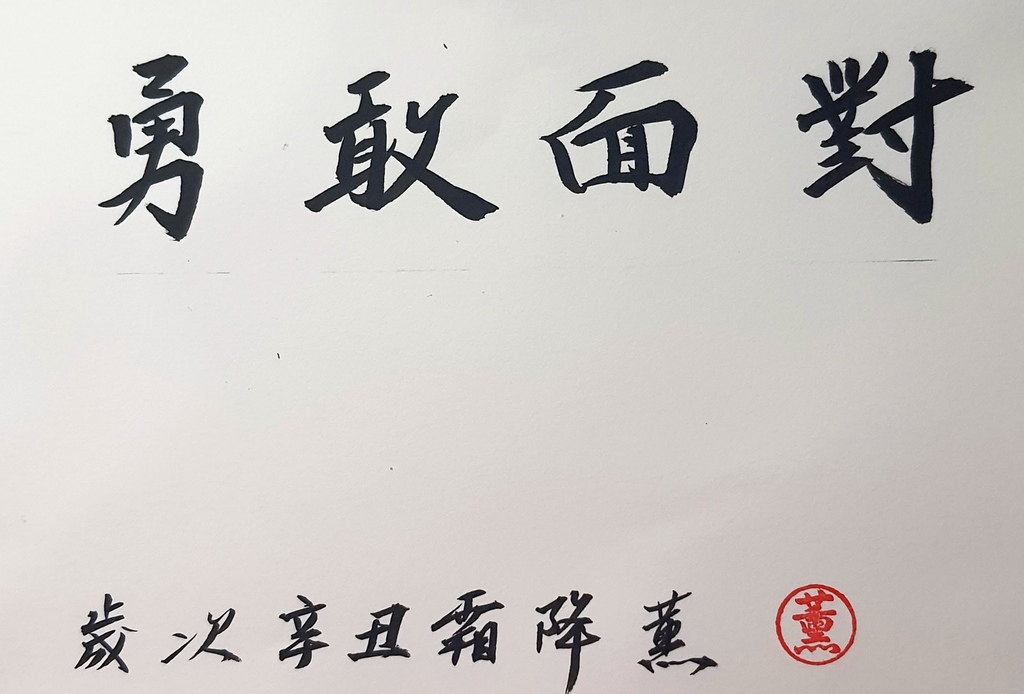 勇敢面對
歲次辛丑霜降薫 薫